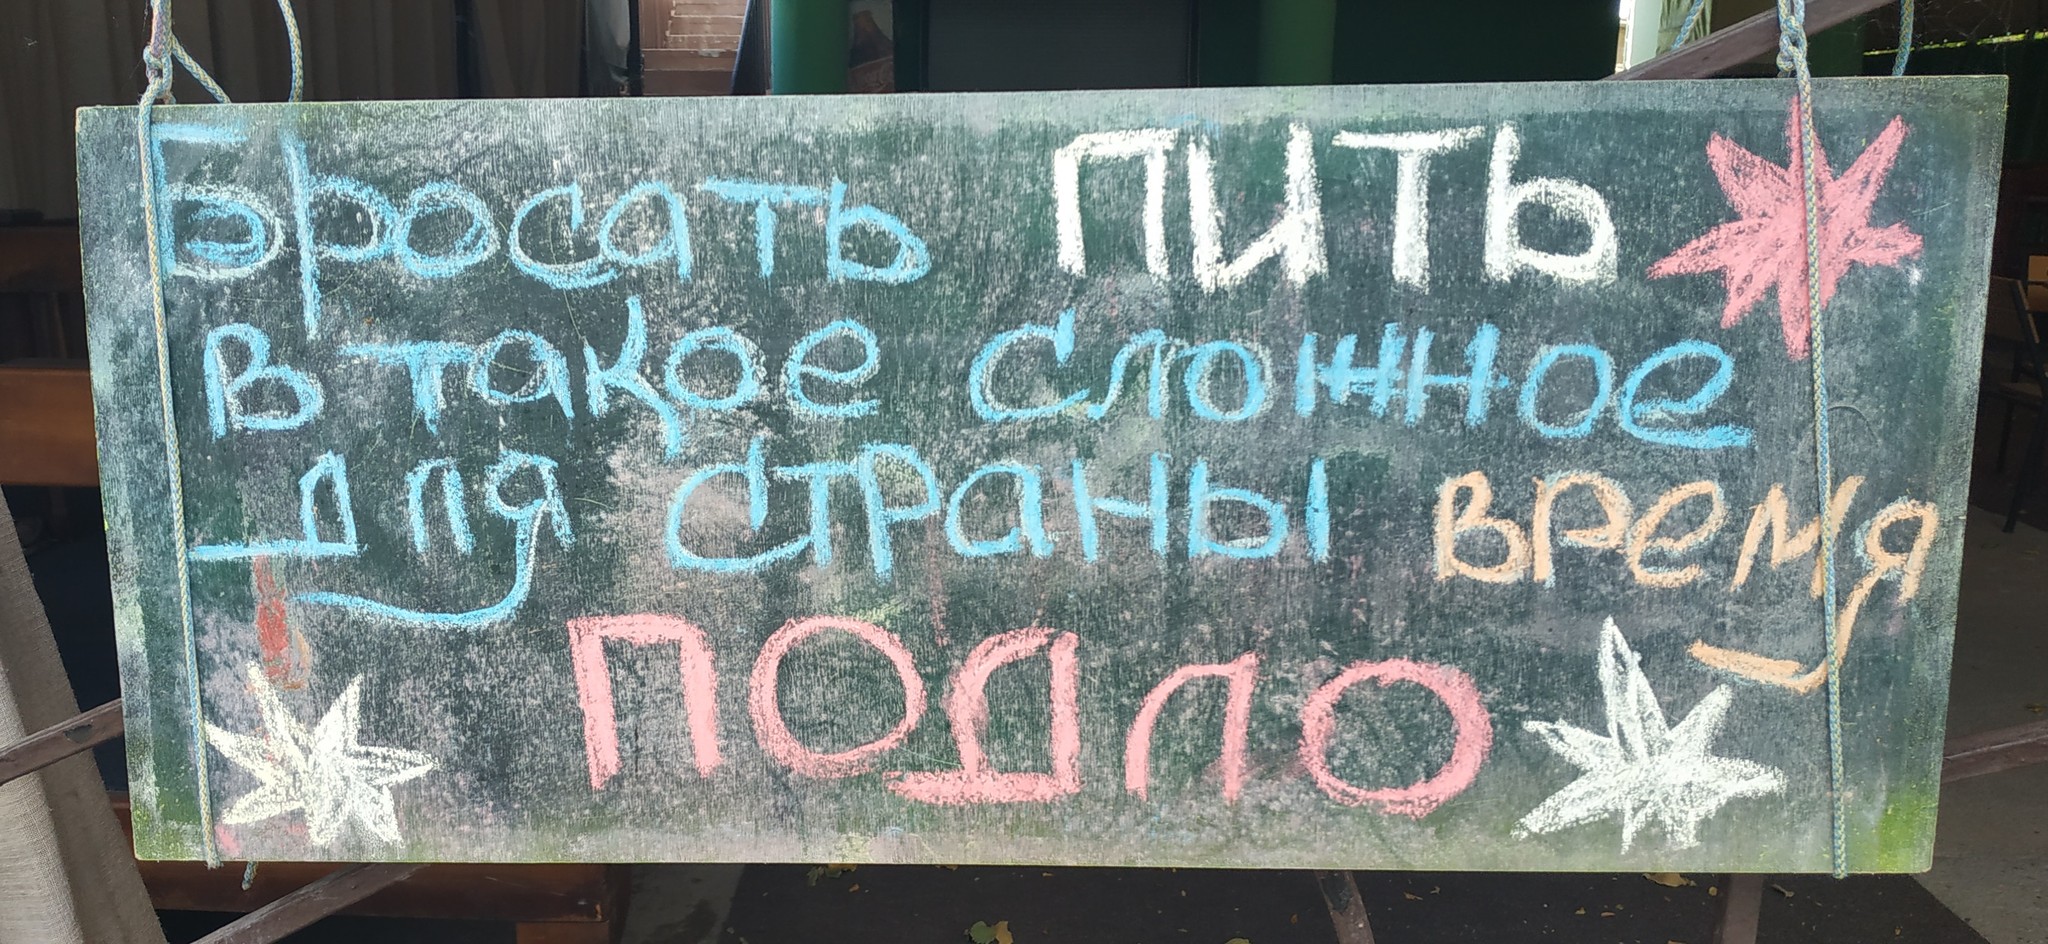 Бросать ПИТЬ
в такое сложное
для страны время
ПОДЛО